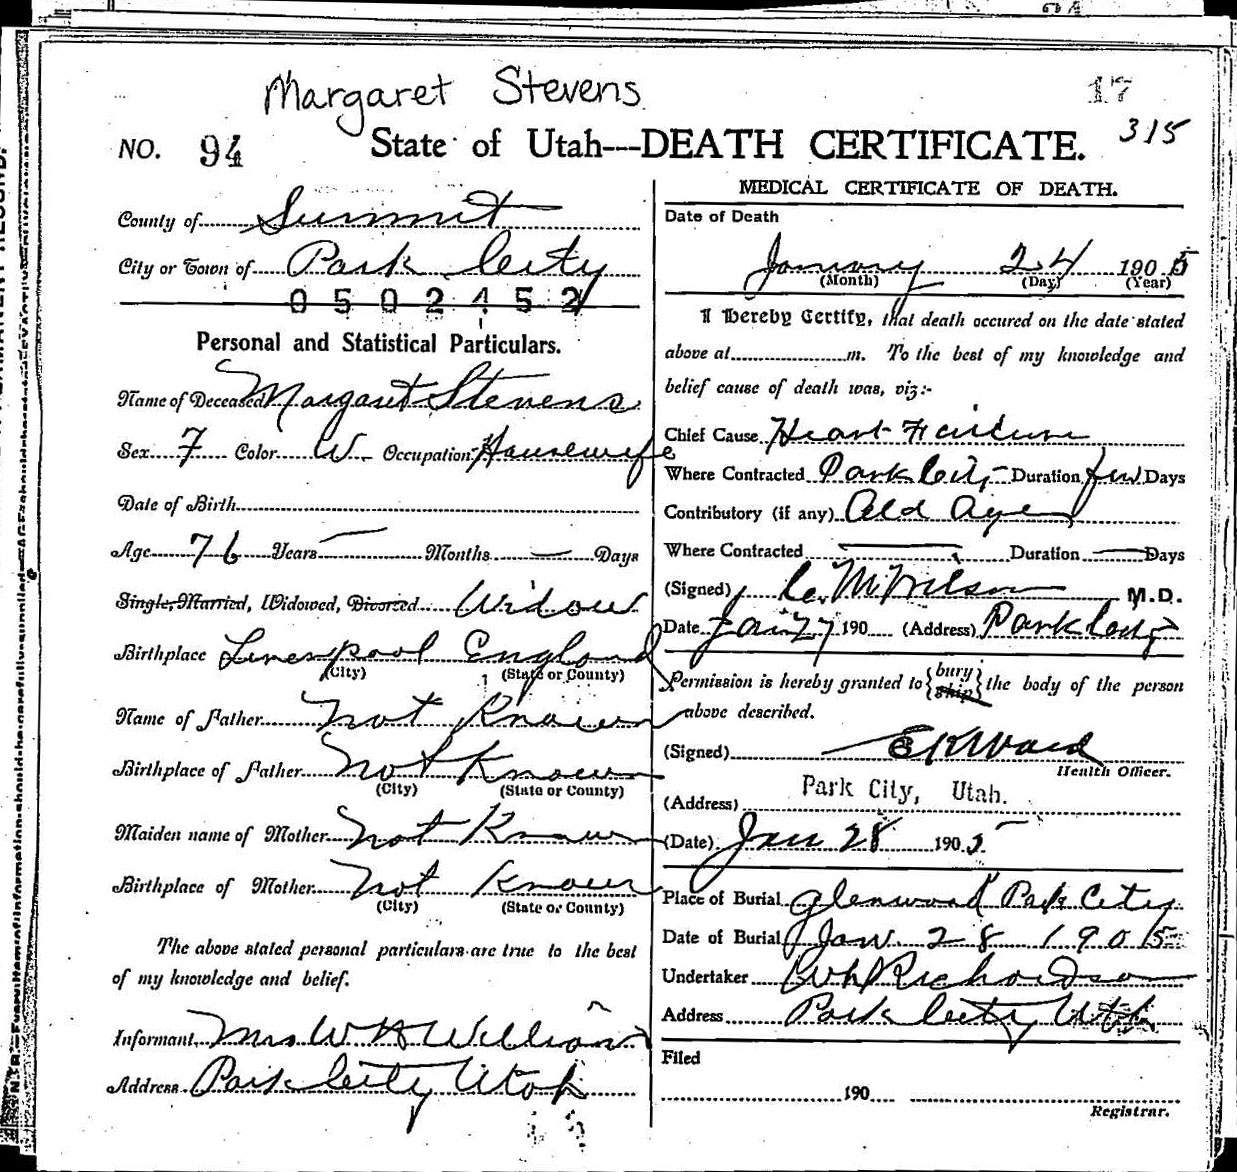 Margaret Stevens
17
315
NO. 94 State of Utah---DEATH CERTIFICATE.
County of Summit
City or Town of Park City
0 5 0 2 4 5 2
Personal and Statistical Particulars.
Name of Deceased Margaret Stevens
Sex F Color W Occupation Housewife
Date of Birth
Age 76 Years — Months — Days
Single, Married, Widowed, Divorced Widow
Birthplace Liverpool England
(City) (State or County)
Name of Father not Known
Birthplace of Father not Known
(City) (State or County)
Maiden name of Mother not Known
Birthplace of Mother not Known
(City) (State or County)
The above stated personal particulars are true to the best
of my knowledge and belief.
Informant Mrs W H
Address Park City Utah
MEDICAL CERTIFICATE OF DEATH.
Date of Death
January 24 1905
(Month) (Day) (Year)
I Hereby Certify, that death occured on the date stated
above at m. To the best of my knowledge and
belief cause of death was, viz:-
Chief Cause Heart Failure
Where Contracted Park City Duration few Days
Contributory (if any) Old Age
Where Contracted — Duration — Days
(Signed) M Wilson M.D.
Date Jan 27 190 (Address) Park City
Permission is hereby granted to {bury ship} the body of the person
above described.
(Signed) E R Ward
Health Officer.
(Address) Park City, Utah.
(Date) Jan 28 1905
Place of Burial Glenwood Park City
Date of Burial Jan. 28 1905
Undertaker Richardson
Address Park City Utah
Filed
190
Registrar.